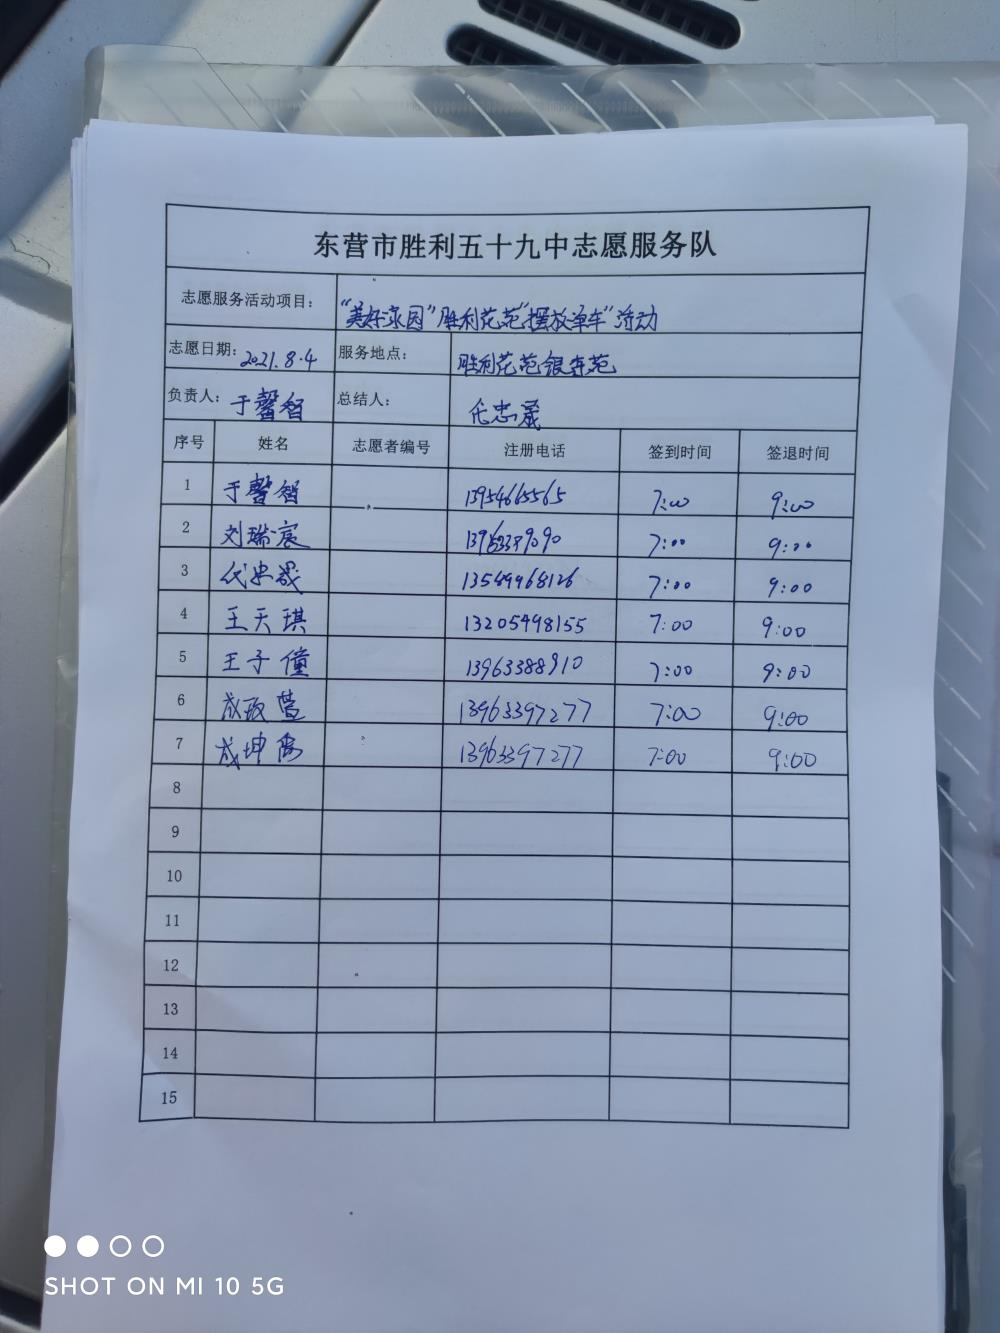 东营市胜利五十九中志愿服务队
志愿服务活动项目： “美好家园”胜利花苑“摆放单车”活动
志愿日期： 2021.8.4 服务地点： 胜利花苑银杏苑
负责人： 于馨智 总结人： 代忠晟
序号 姓名 志愿者编号 注册电话 签到时间 签退时间
1 于馨智 13954665565 7:00 9:00
2 刘瑞宸 7:00 9:00
3 代忠晟 13549968126 7:00 9:00
4 王天琪 13205498155 7:00 9:00
5 王子僮 13963388910 7:00 9:00
6 成 萱 13963397277 7:00 9:00
7 成坤 13963397277 7:00 9:00
8
9
10
11
12
13
14
15
SHOT ON MI 10 5G